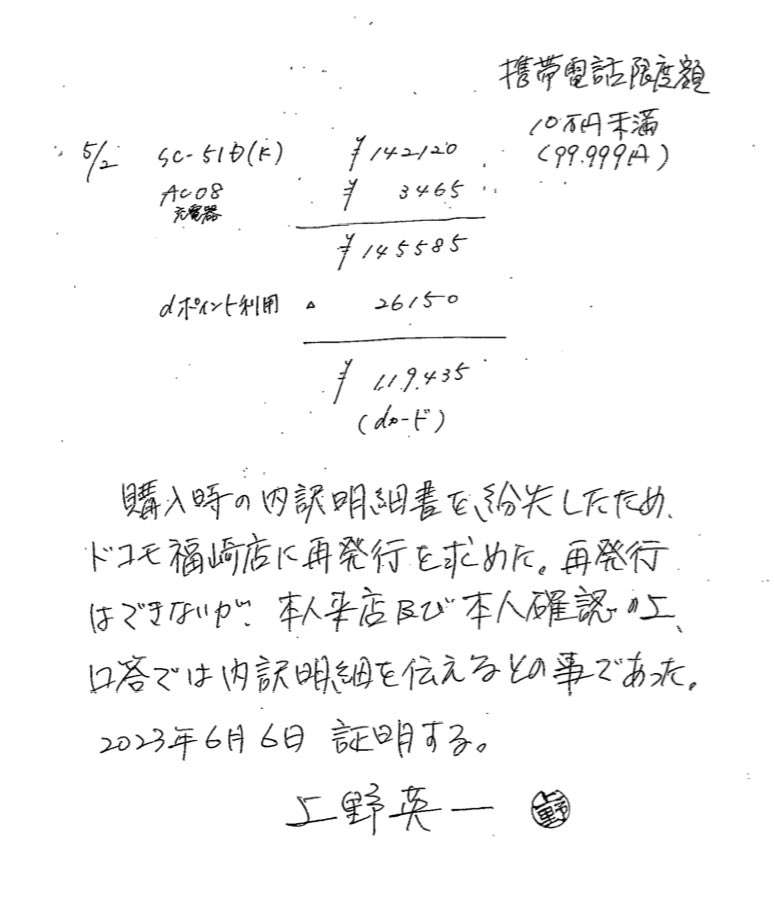 携帯電話限度額
10万円未満
(99.999円)
5/2 SC-51D(K) ¥142120
AC08 ¥ 3465
充電器
¥145585
dポイント利用 △ 26150
¥119.435
(dカード)
購入時の内訳明細書を、紛失したため、
ドコモ福崎店に再発行を求めた。再発行
はできないが、本人来店及び本人確認の上、
口答では内訳明細を伝えるとの事であった。
2023年6月6日 証明する。
上野英一 上野